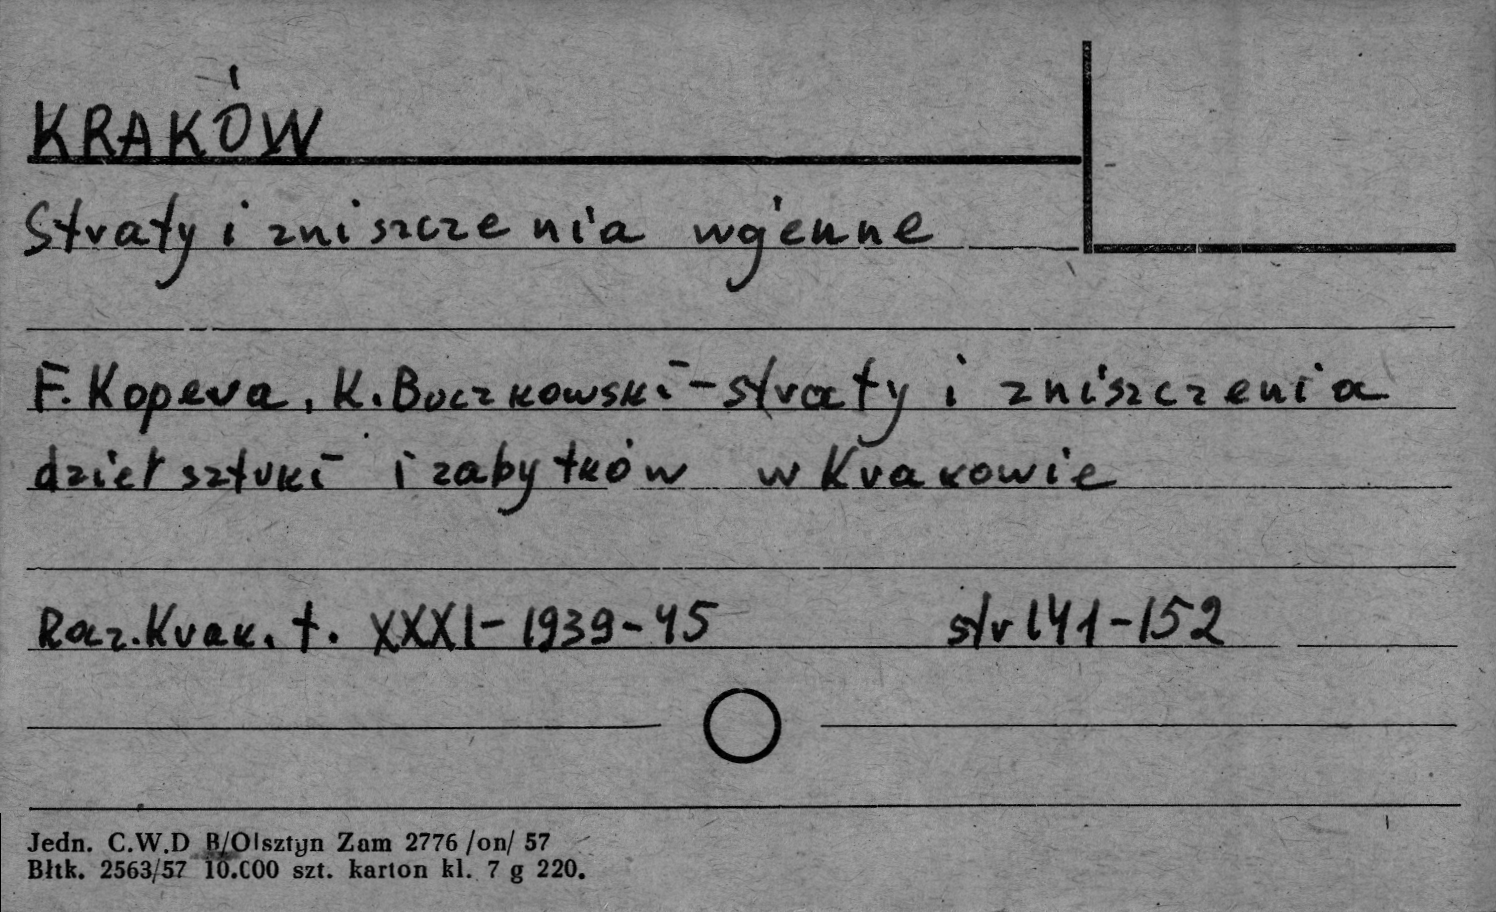 KRAKÓW
Straty i zniszczenia wojenne
F. Kopera, K. Buczkowski - straty i zniszczenia
dzieł sztuki i zabytków w Krakowie
Rocz. Krak. t. XXXI - 1939-45 str 141-152
Jedn. C.W.D B/Olsztyn Zam 2776 /on/ 57
Błtk. 2563/57 10.000 szt. karton kl. 7 g 220.